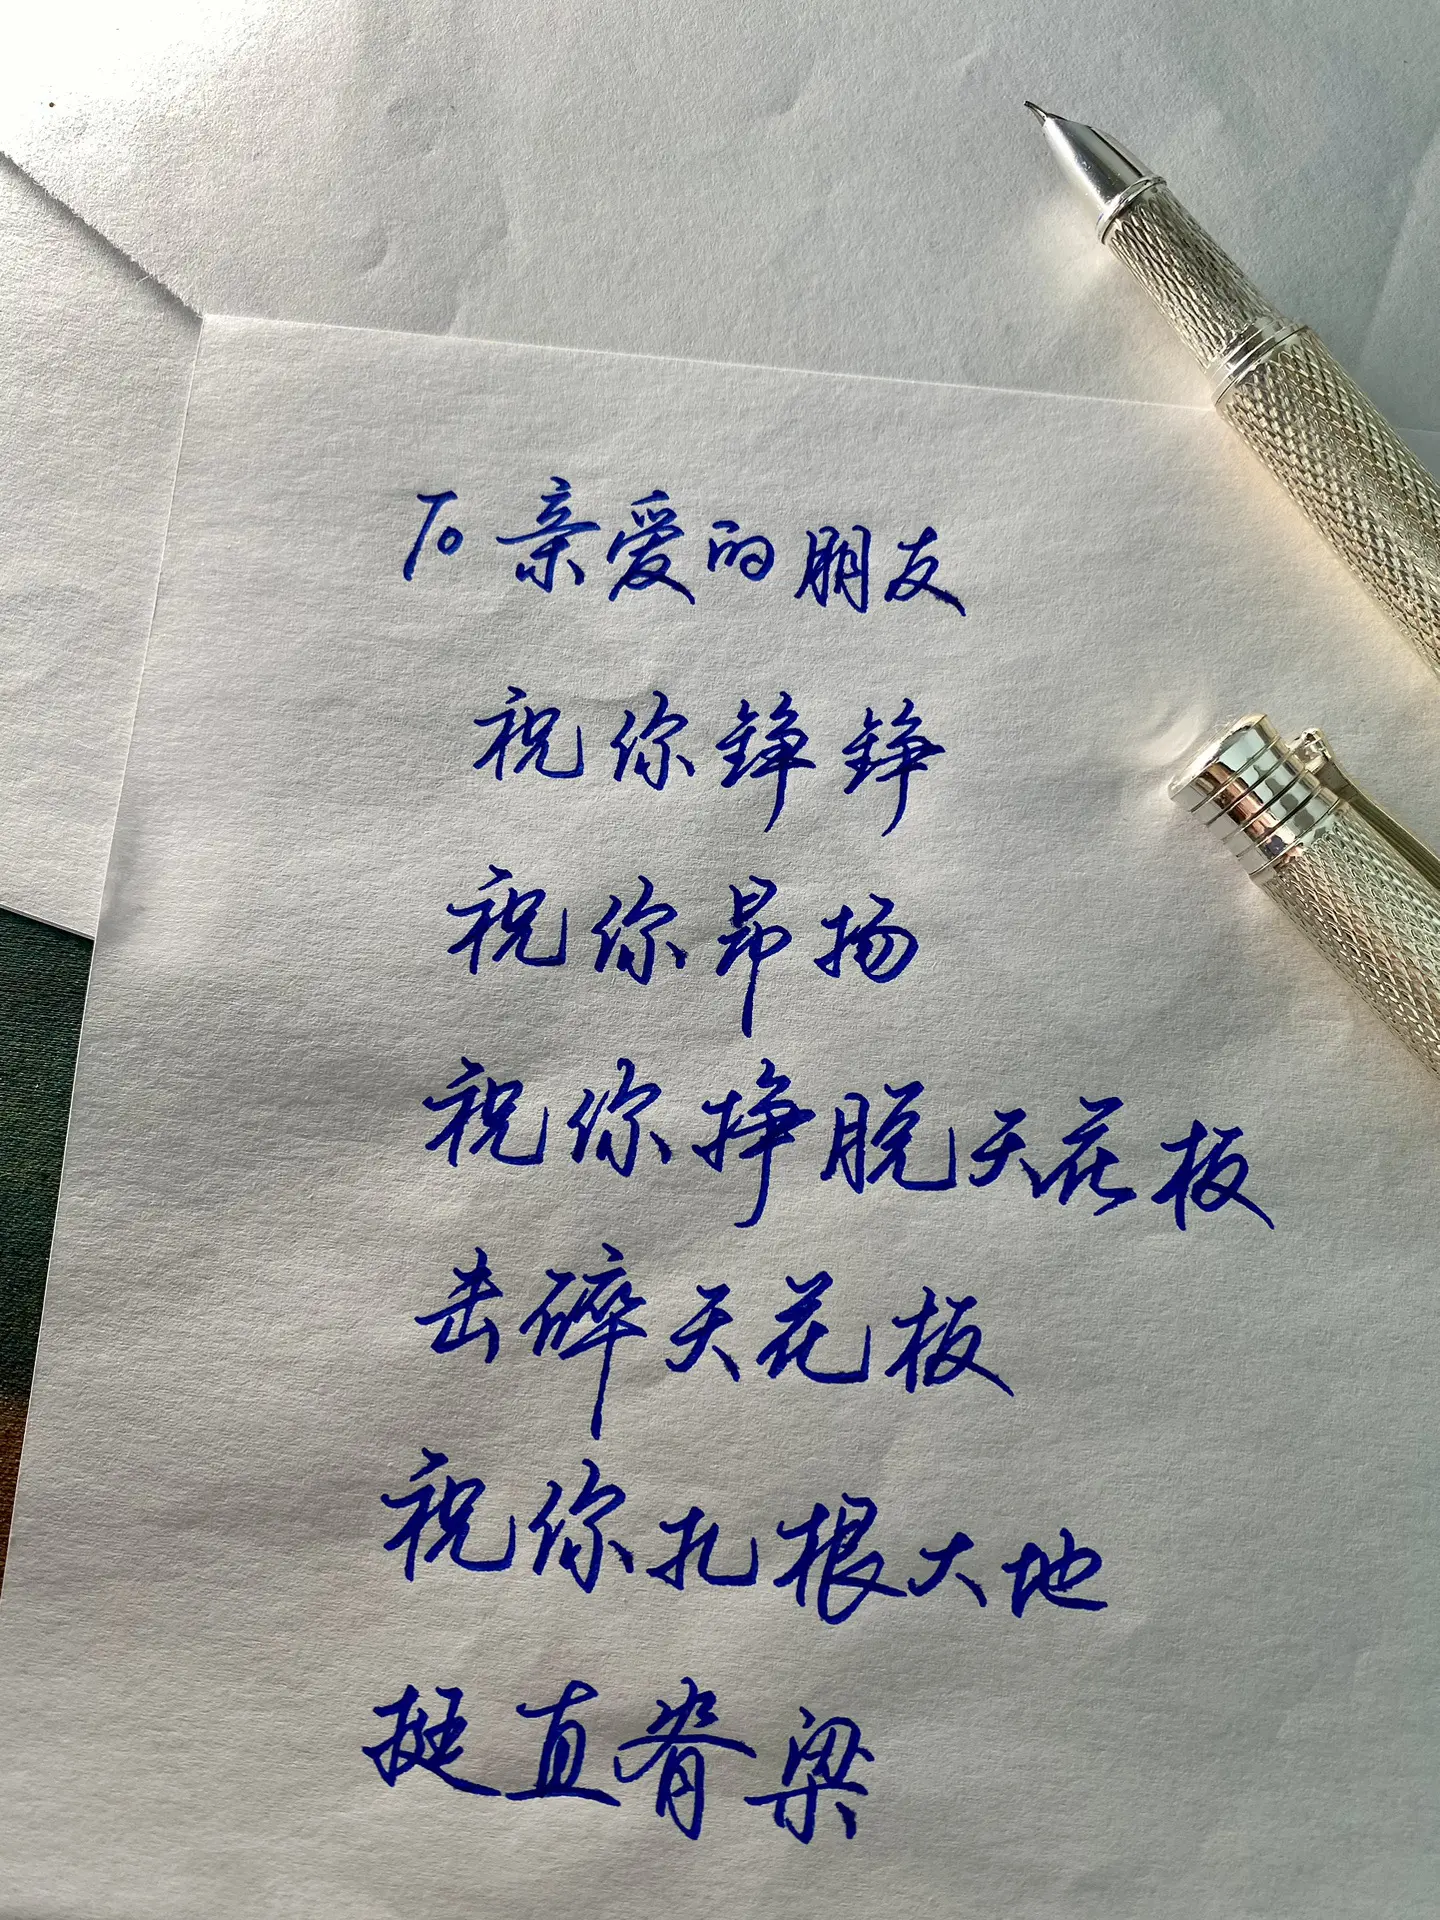 To 亲爱的朋友
祝你铮铮
祝你昂扬
祝你挣脱天花板
击碎天花板
祝你扎根大地
挺直脊梁